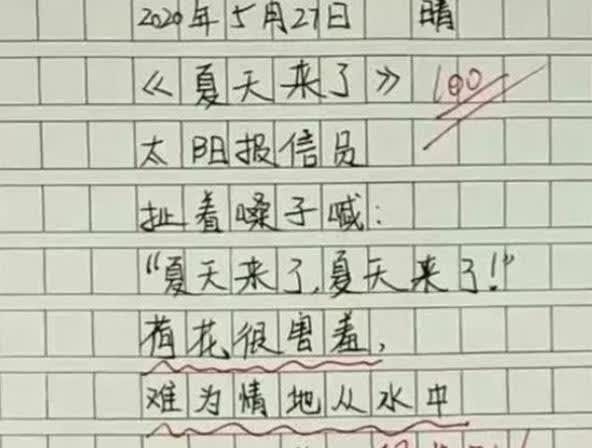 2020年5月27日 晴
《夏天来了》 100
太阳报信员
扯着嗓子喊:
“夏天来了,夏天来了!”
荷花很害羞,
难为情地从水中